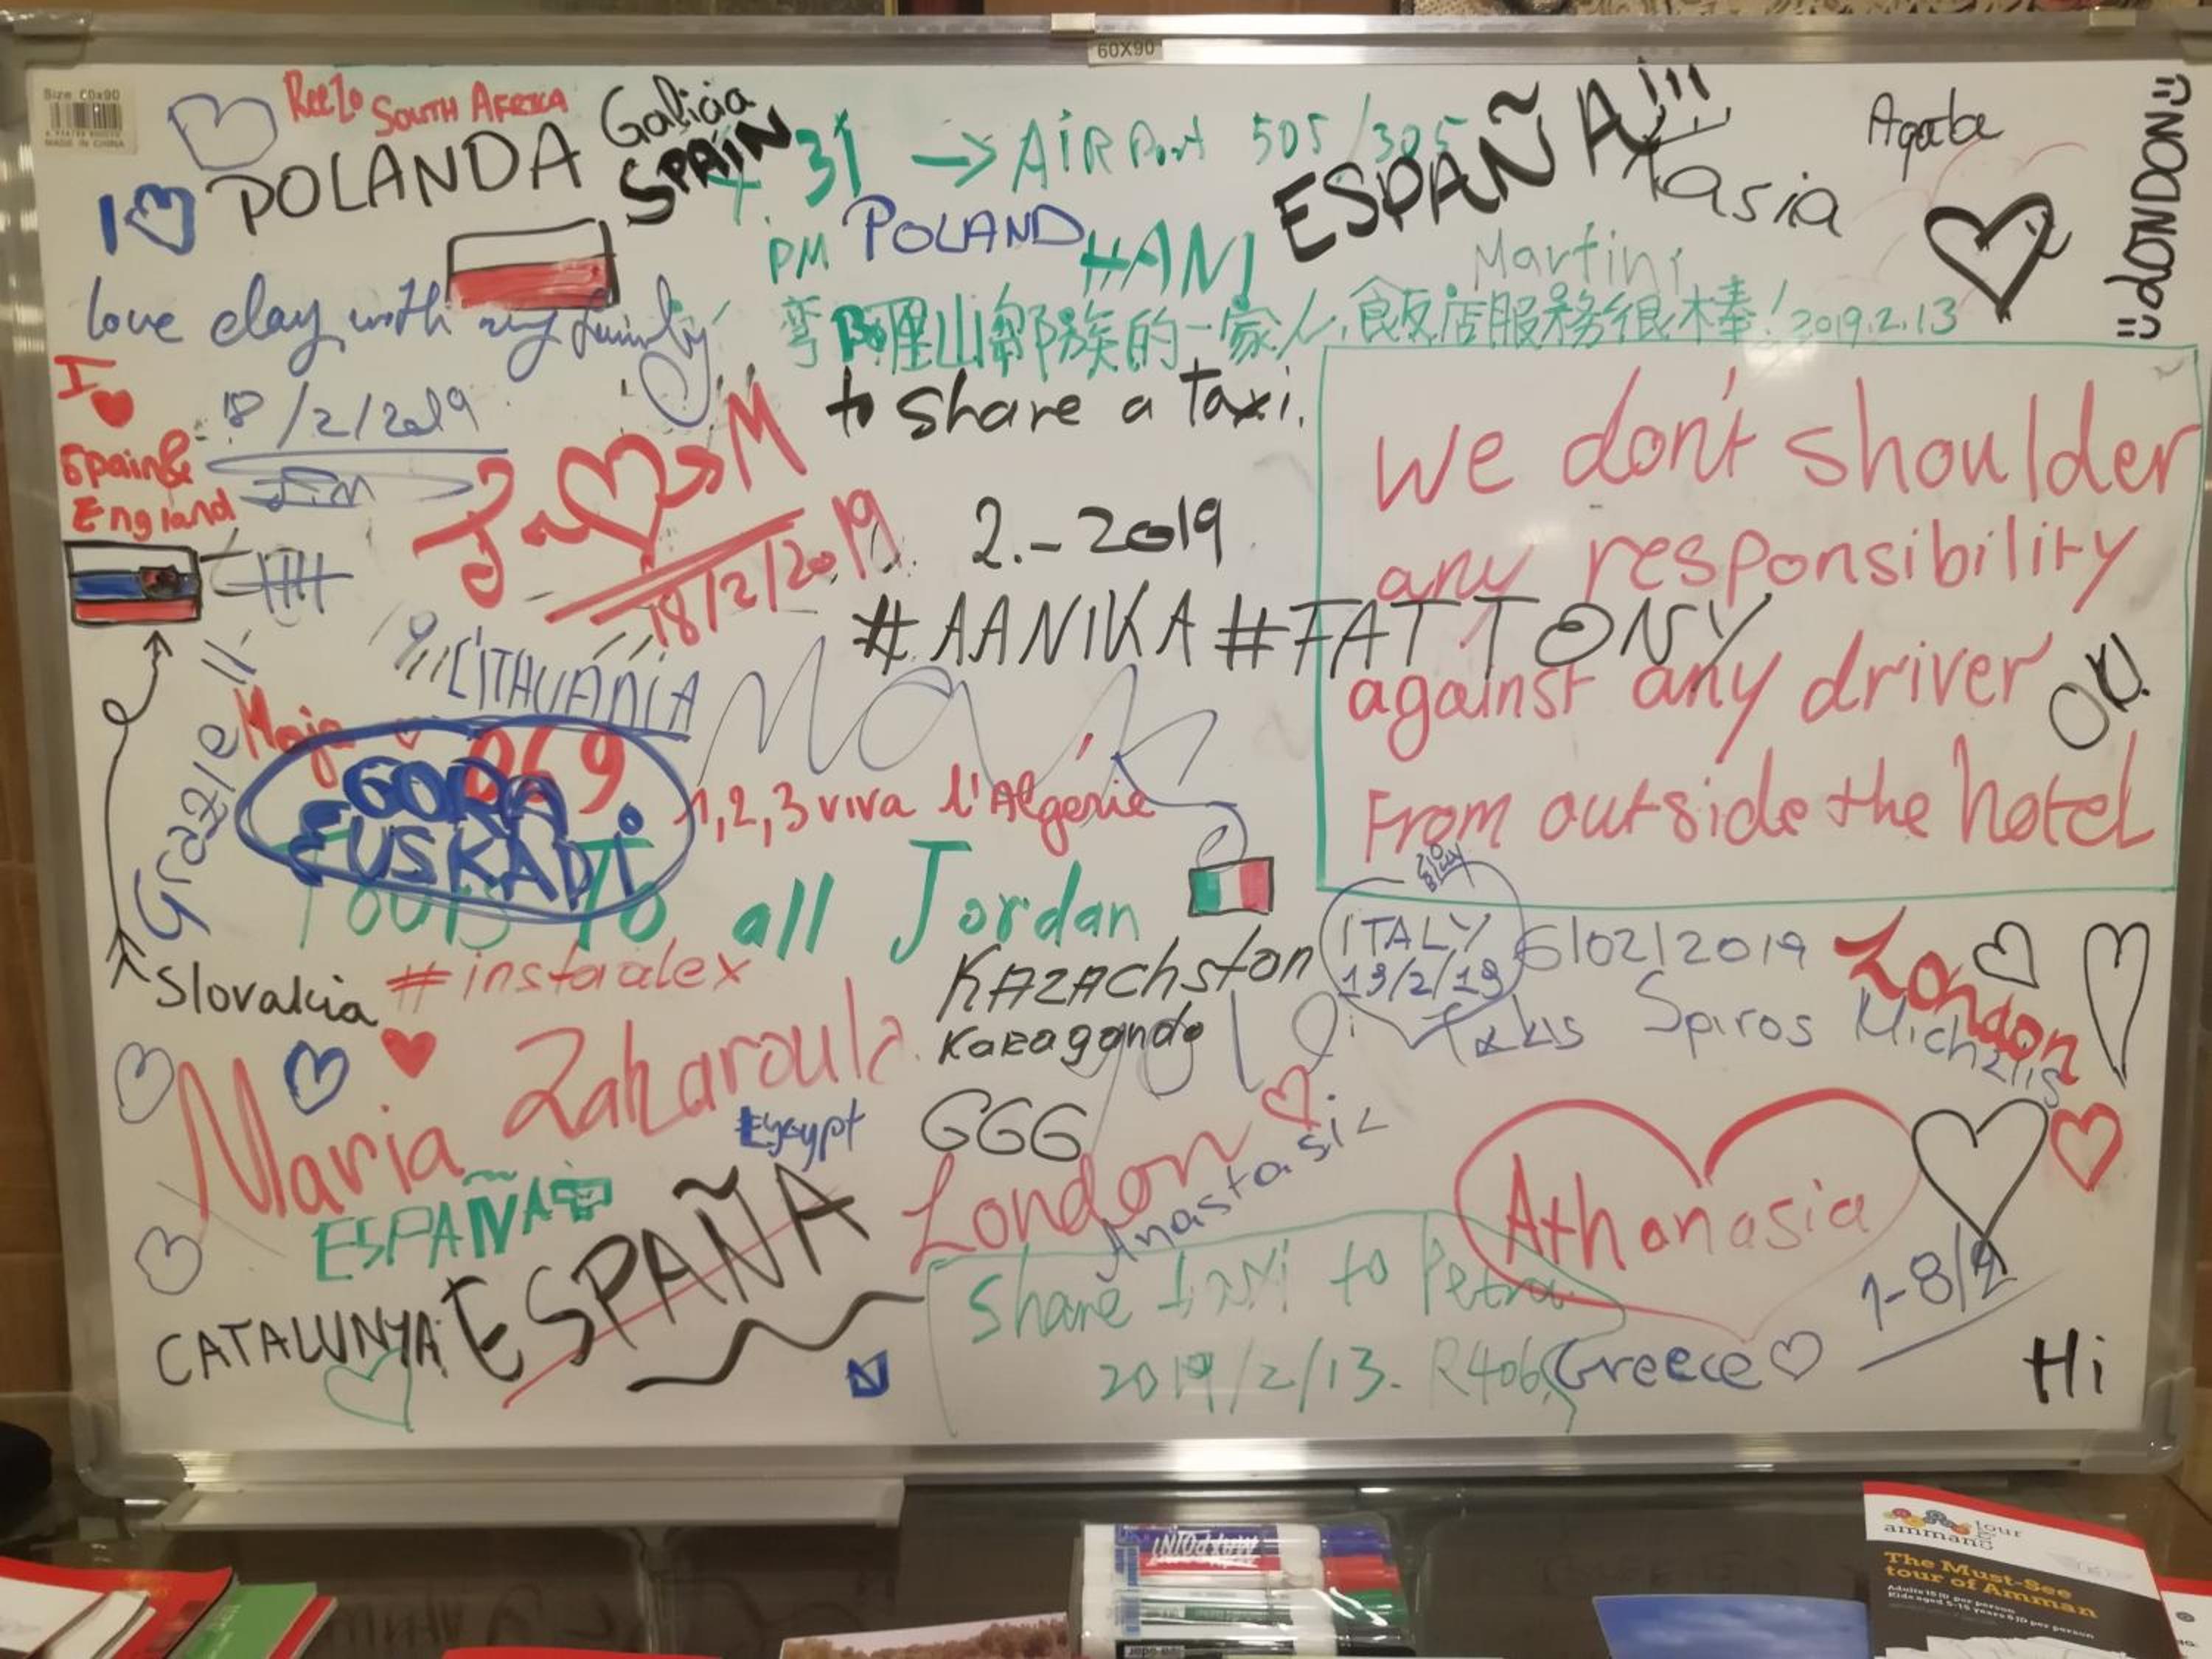 60X90
Size: 60x90
MADE IN CHINA
SOUTH AFRICA
Galicia
SPAIN
31 → AiRPort 505/305
ESPAÑA!!!
Tasia
Agata
LONDON
I ♡ POLANDA
PM
POLAND
HANI
Martini
love day with my family
阿里山鄒族的一家人,飯店服務很棒! 2019.2.13
to share a taxi.
I ♥
Spain &
England
18/2/2019
J ♡ M
18/2/2019
2.-2019
#AANIKA #FATTONY
We don't shoulder
any responsibility
against any driver
From outside the hotel
OK!
LITHUANIA
Grazie!!
Maja
869
GORA
EUSKADI
1,2,3 viva l'Algérie
Tours To all Jordan
Slovakia
#instaalex
KAZACHstan
Karaganda
ITALY
13/2/19
6/02/2019
London
Takis Spiros Michalis
Maria Zaharoula
Egypt
GGG
London
Anastasia
Athanasia
ESPAÑA
ESPAÑA
CATALUNYA
Share taxi to Petra
2019/2/13. R406
Greece ♡
1-8/2
Hi
MAXPOINT
tour
amman
The Must-See
tour of Amman